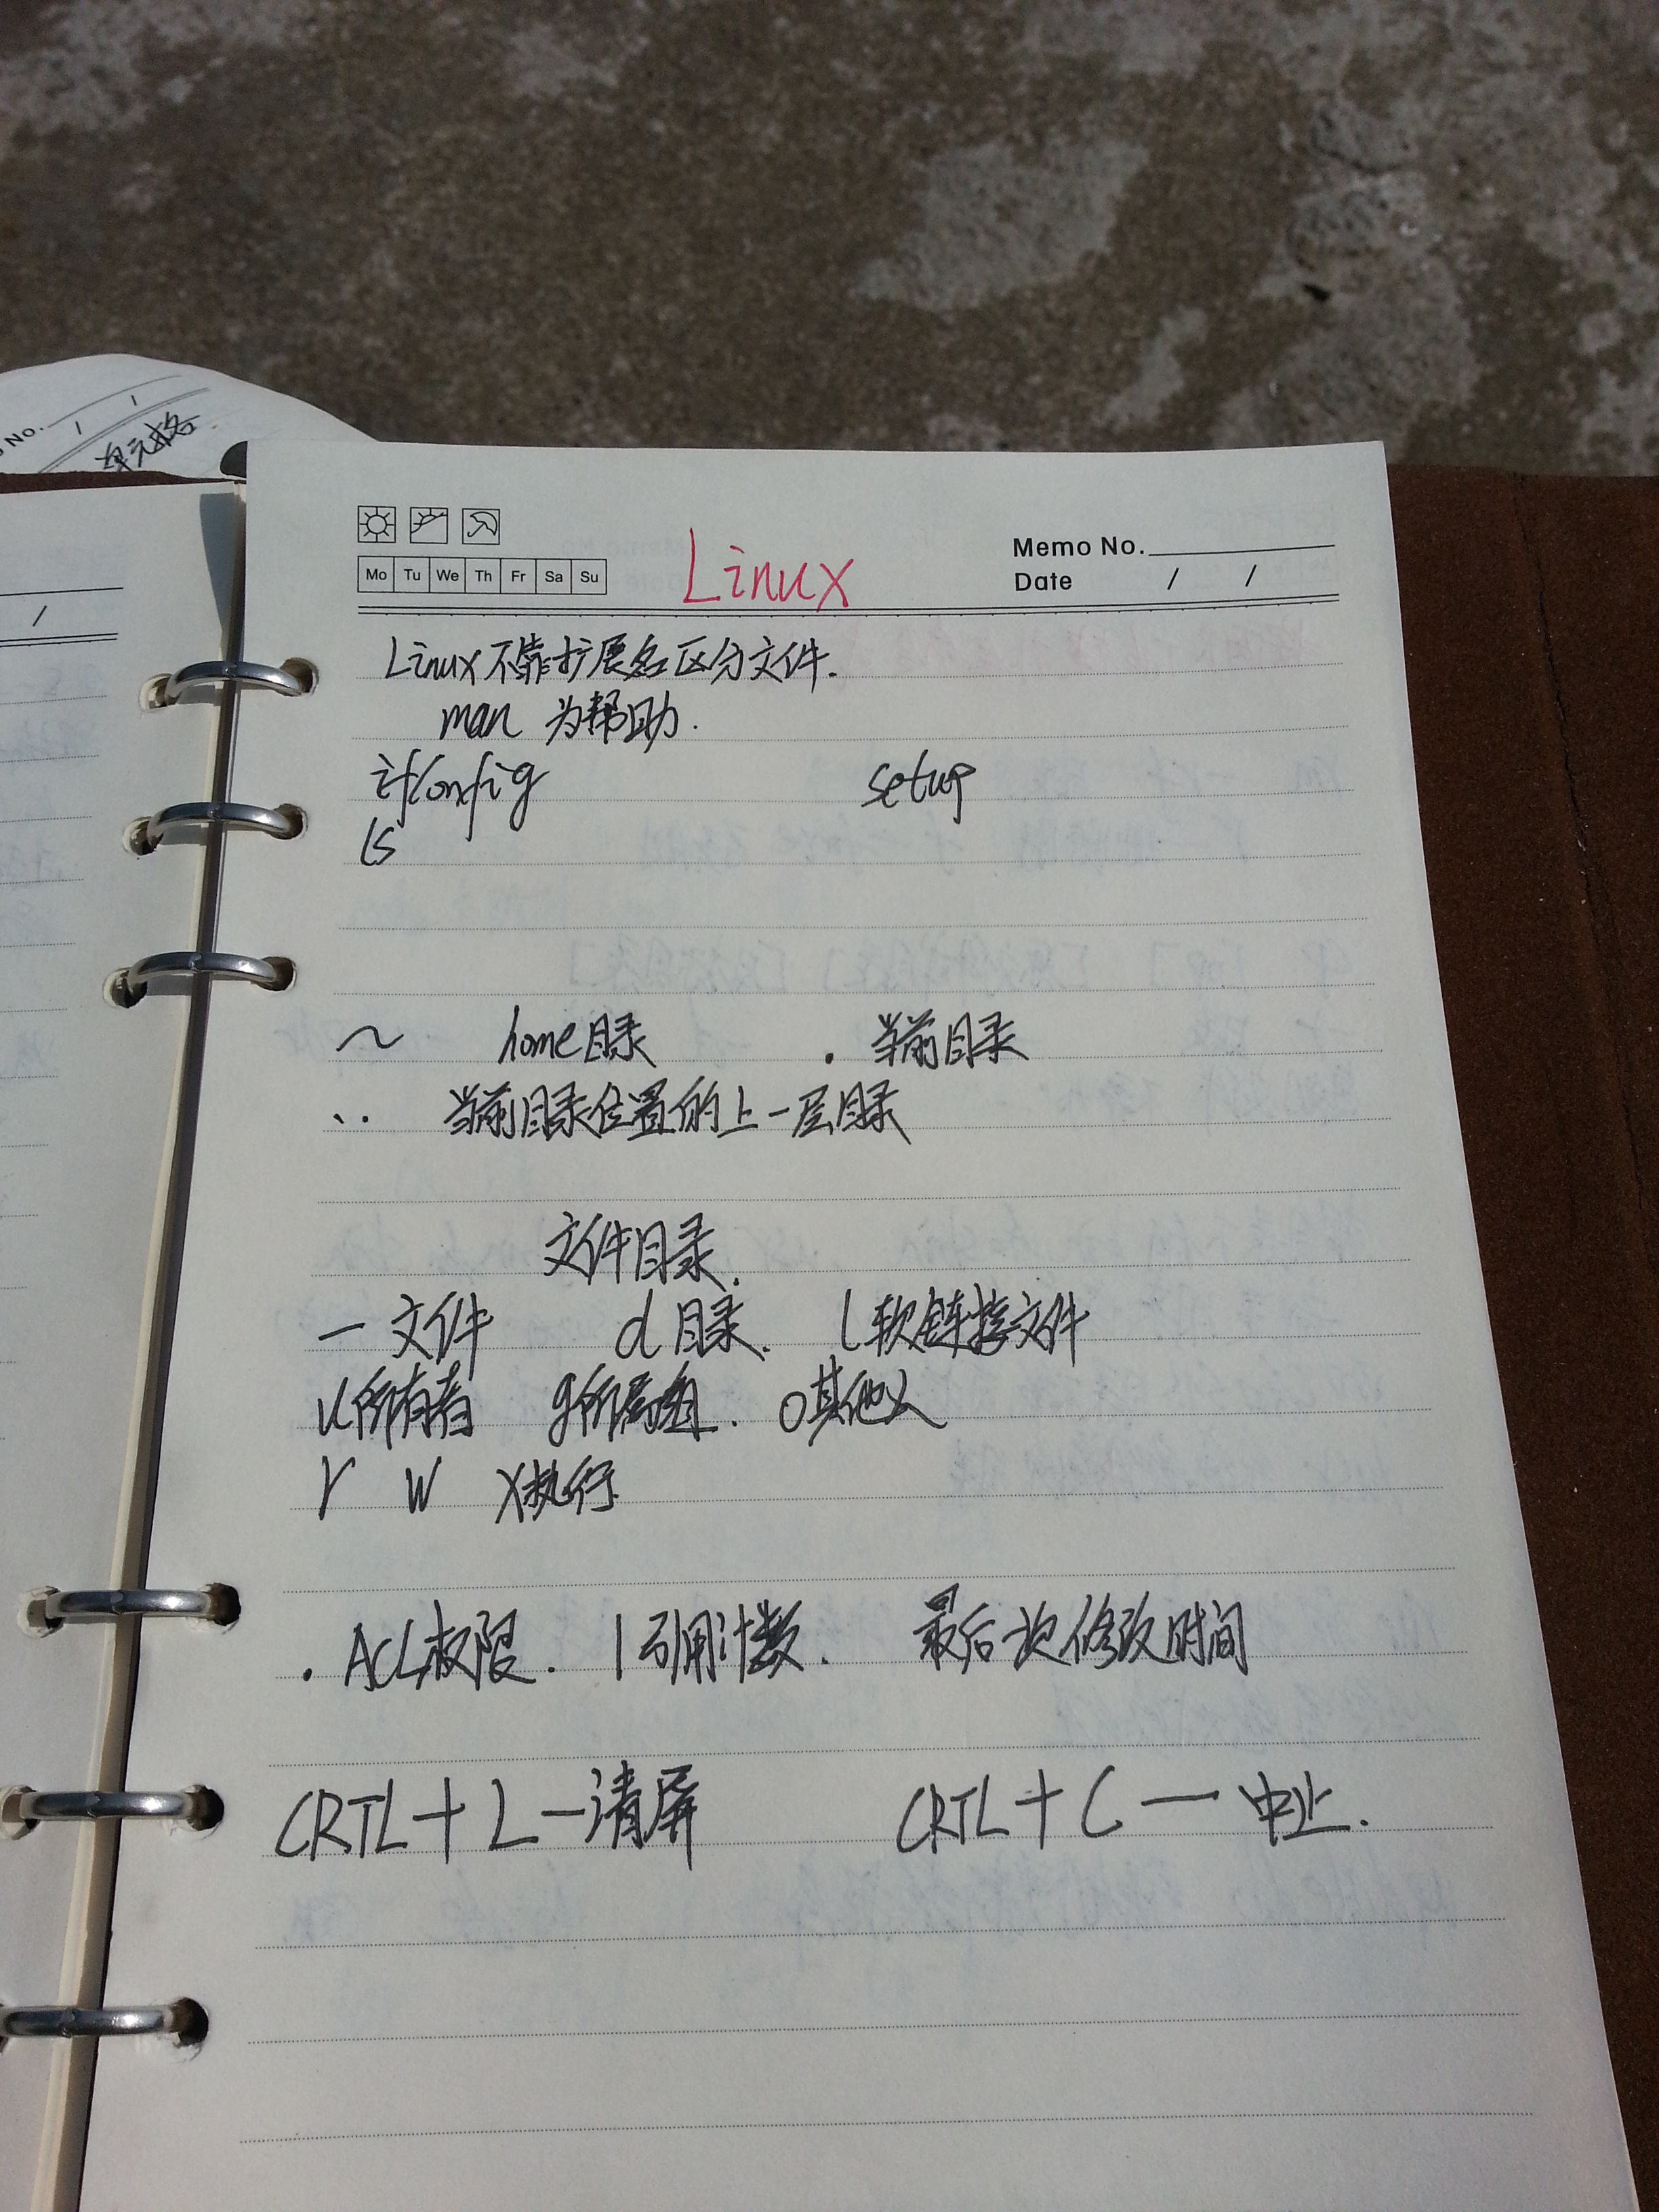 No. / /
单元格
/
Linux
Memo No.
Mo Tu We Th Fr Sa Su
Date / /
Linux不靠扩展名区分文件.
man 为帮助.
ifconfig setup
ls
~ home目录 . 当前目录
.. 当前目录位置的上一层目录
文件目录.
— 文件 d 目录. l 软链接文件
u所有者 g所属组. o其他人
r w x执行
. ACL权限. 1 引用计数. 最后一次修改时间
CRTL+L—清屏 CRTL+C—中止.